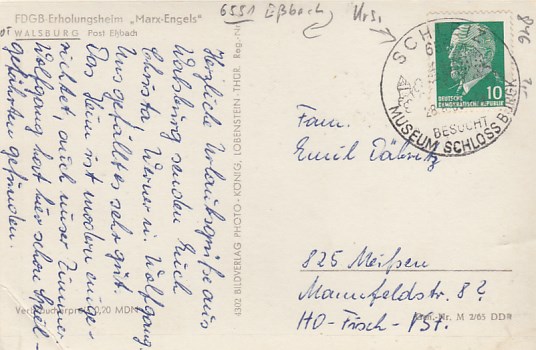 FDGB-Erholungsheim „Marx-Engels"
WALSBURG Post Eßbach
6551 Eßbach
Urs.
846
Herzliche Urlaubsgrüße aus
Walsburg senden Euch
Christa Werner u. Wolfgang.
Uns gefällt es sehr gut.
Das Heim ist modern einge-
richtet auch unser Zimmer.
Wolfgang hat hier schon Spiel-
gefährten gefunden.
Verbraucherpreis 0,20 MDN
4302 BILDVERLAG PHOTO-KÖNIG, LOBENSTEIN-THÜR. Reg.-Nr.
SCHLEIZ
BESUCHT
MUSEUM SCHLOSS BURGK
10
DEUTSCHE
DEMOKRATISCHE REPUBLIK
Fam.
Emil Däbritz
825 Meißen
Mannfeldstr. 8?
HO-Fisch-Bst.
Gen.-Nr. M 2/65 DDR